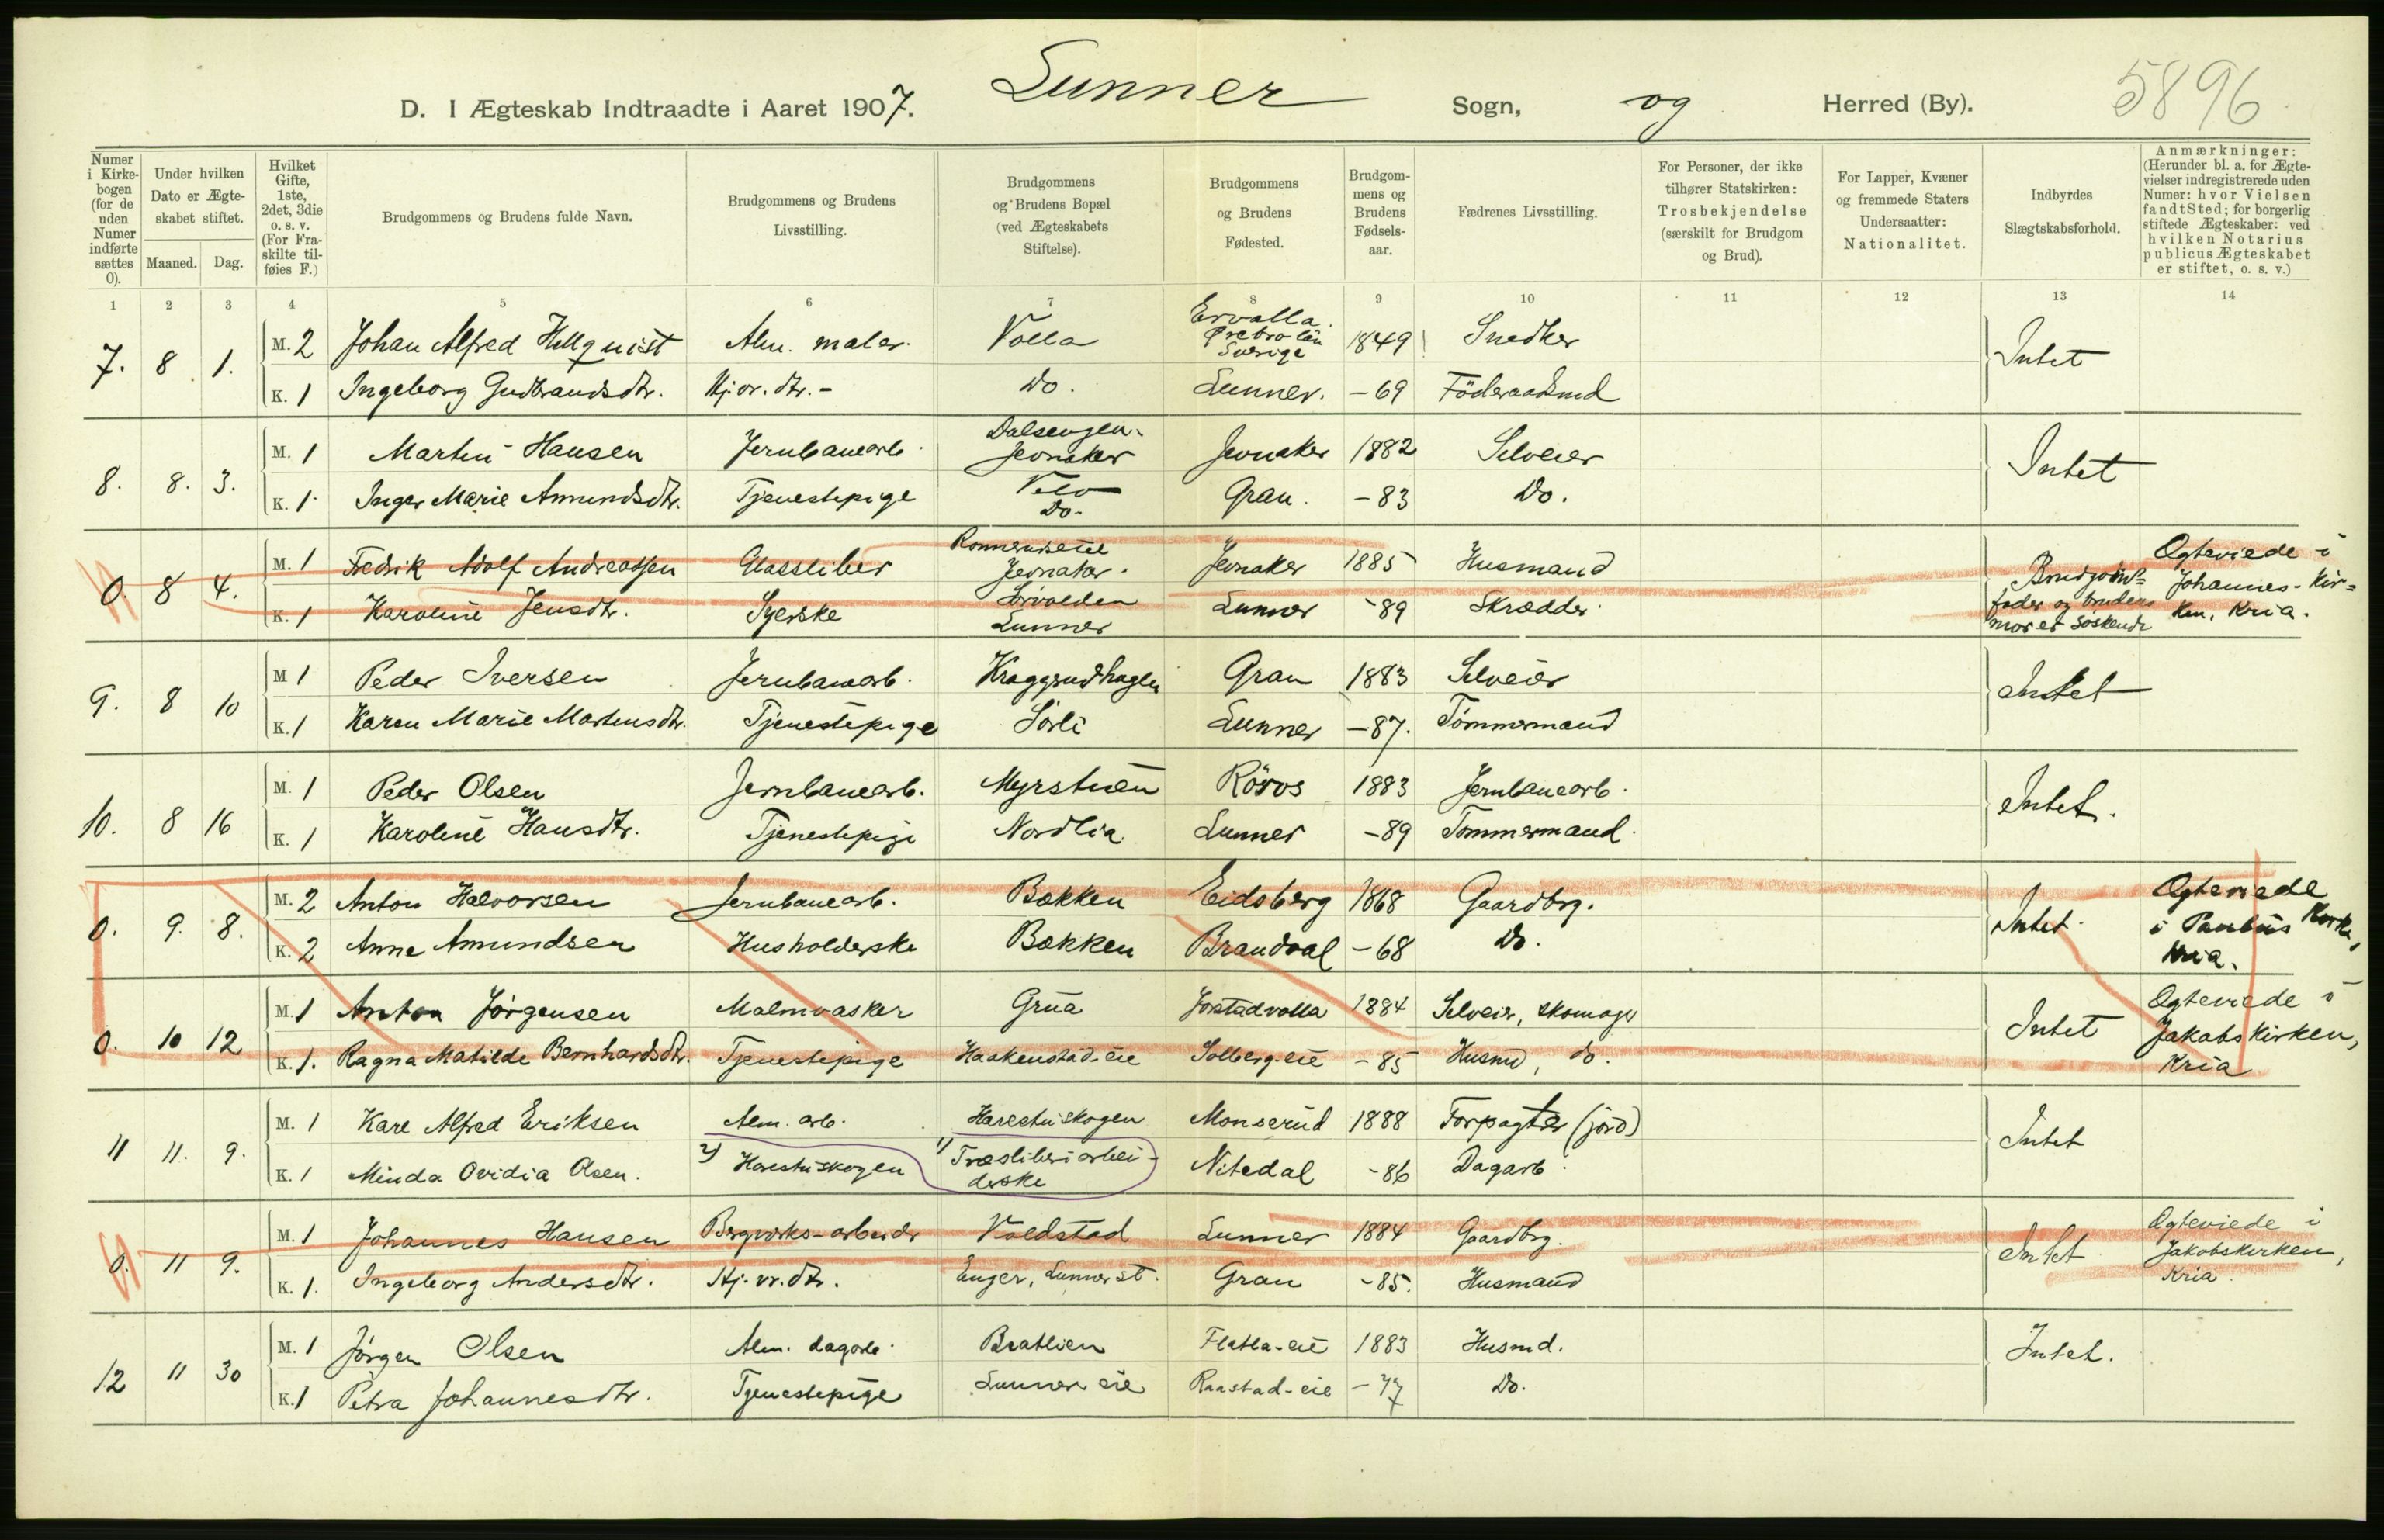 D. I Ægteskab Indtraadte i Aaret 1907. Lunner Sogn, og Herred (By). 5896
Numer i Kirkebogen (for de uden Numer indførte sættes 0).
Under hvilken Dato er Ægteskabet stiftet.
Maaned. Dag.
Hvilket Gifte, 1ste, 2det, 3die o. s. v. (For Fraskilte tilføies F.)
Brudgommens og Brudens fulde Navn.
Brudgommens og Brudens Livsstilling.
Brudgommens og Brudens Bopæl (ved Ægteskabets Stiftelse).
Brudgommens og Brudens Fødested.
Brudgommens og Brudens Fødselsaar.
Fædrenes Livsstilling.
For Personer, der ikke tilhører Statskirken: Trosbekjendelse (særskilt for Brudgom og Brud).
For Lapper, Kvæner og fremmede Staters Undersaatter: Nationalitet.
Indbyrdes Slægtskabsforhold.
Anmærkninger: (Herunder bl. a. for Ægtevielser indregistrerede uden Numer: hvor Vielsen fandt Sted; for borgerlig stiftede Ægteskaber: ved hvilken Notarius publicus Ægteskabet er stiftet, o. s. v.)
1 2 3 4 5 6 7 8 9 10 11 12 13 14
7. 8 1. M. 2 Johan Alfred Hellquist Alm. maler. Volla Ervalla. Ørebro län Sverige 1849 Snedker Intet
K. 1 Ingeborg Gudbrandsdtr. Hj. vr. dtr. - Do. Lunner. -69 Föderaadsmd
8. 8. 3. M. 1 Martin Hansen Jernbanearb. Dalsengen. Jevnaker Jevnaker 1882 Selveier Intet
K. 1 Inger Marie Amundsdtr. Tjenestepige Velo Do. Gran. -83 Do.
0. 8 4. M. 1 Fredrik Adolf Andreassen Glassliber Jevnaker. Jevnaker 1885 Husmand Brudgoms= fader og brudens mor er søskende Ogteviede i Johannes-Kir= ken, Kria.
K. 1 Karoline Jensdtr. Syerske Lunner Lunner -89 Skrædder.
9. 8 10 M 1 Peder Iversen Jernbanearb. Kraggrudhagen Gran 1883 Selveier Intet
K. 1 Karen Marie Martinsdtr. Tjenestepige Sörli Lunner -87. Tömmermand
10. 8 16 M. 1 Peder Olsen Jernbanearb. Myrstuen Röros 1883 Jernbanearb. Intet.
K. 1 Karoline Hansdtr. Tjenestepige Nordlia Lunner -89 Tømmermand.
0. 9. 8. M. 2 Anton Halvorsen Jernbanearb. Bækken Eidsberg 1868 Gaardbrg. Intet. Ogteviede i Paulus Kirke, Kria.
K. 2 Anne Amundsen Husholderske Bækken Brandval -68 Do.
0. 10 12 M. 1 Anton Jörgensen Malmvasker Grua Jostadvolla 1884 Selveier, skomager Intet Ogteviede i Jakobskirken, Kria
K. 1. Ragna Matilde Bernhardsdtr. Tjenestepige Haakenstad-eie Solberg-eie -85 Husmd, do.
11 11. 9. M. 1 Karl Alfred Eriksen Alm. arb. Harestuskogen Monserud 1888 Forpagter (jord) Intet
K. 1 Minda Ovidia Olsen. 2) Harestuskogen 1) Træsliberiarbei- derske Nitedal -86 Dagarb.
0. 11 9. M. 1 Johannes Hansen Bergverks-arbeider Voldstad Lunner 1884 Gaardbrg. Intet Ogteviede i Jakobskirken, Kria.
K. 1. Ingeborg Andersdtr. Hj. vr. dtr. Enger, Lunner st. Gran -85. Husmand
12 11 30 M. 1 Jörgen Olsen Alm. dagarb. Bratlien Flatla-eie 1883 Husmd. Intet.
K. 1 Petra Johannesdtr. Tjenestepige Lunner eie Raastad-eie -77 Do.